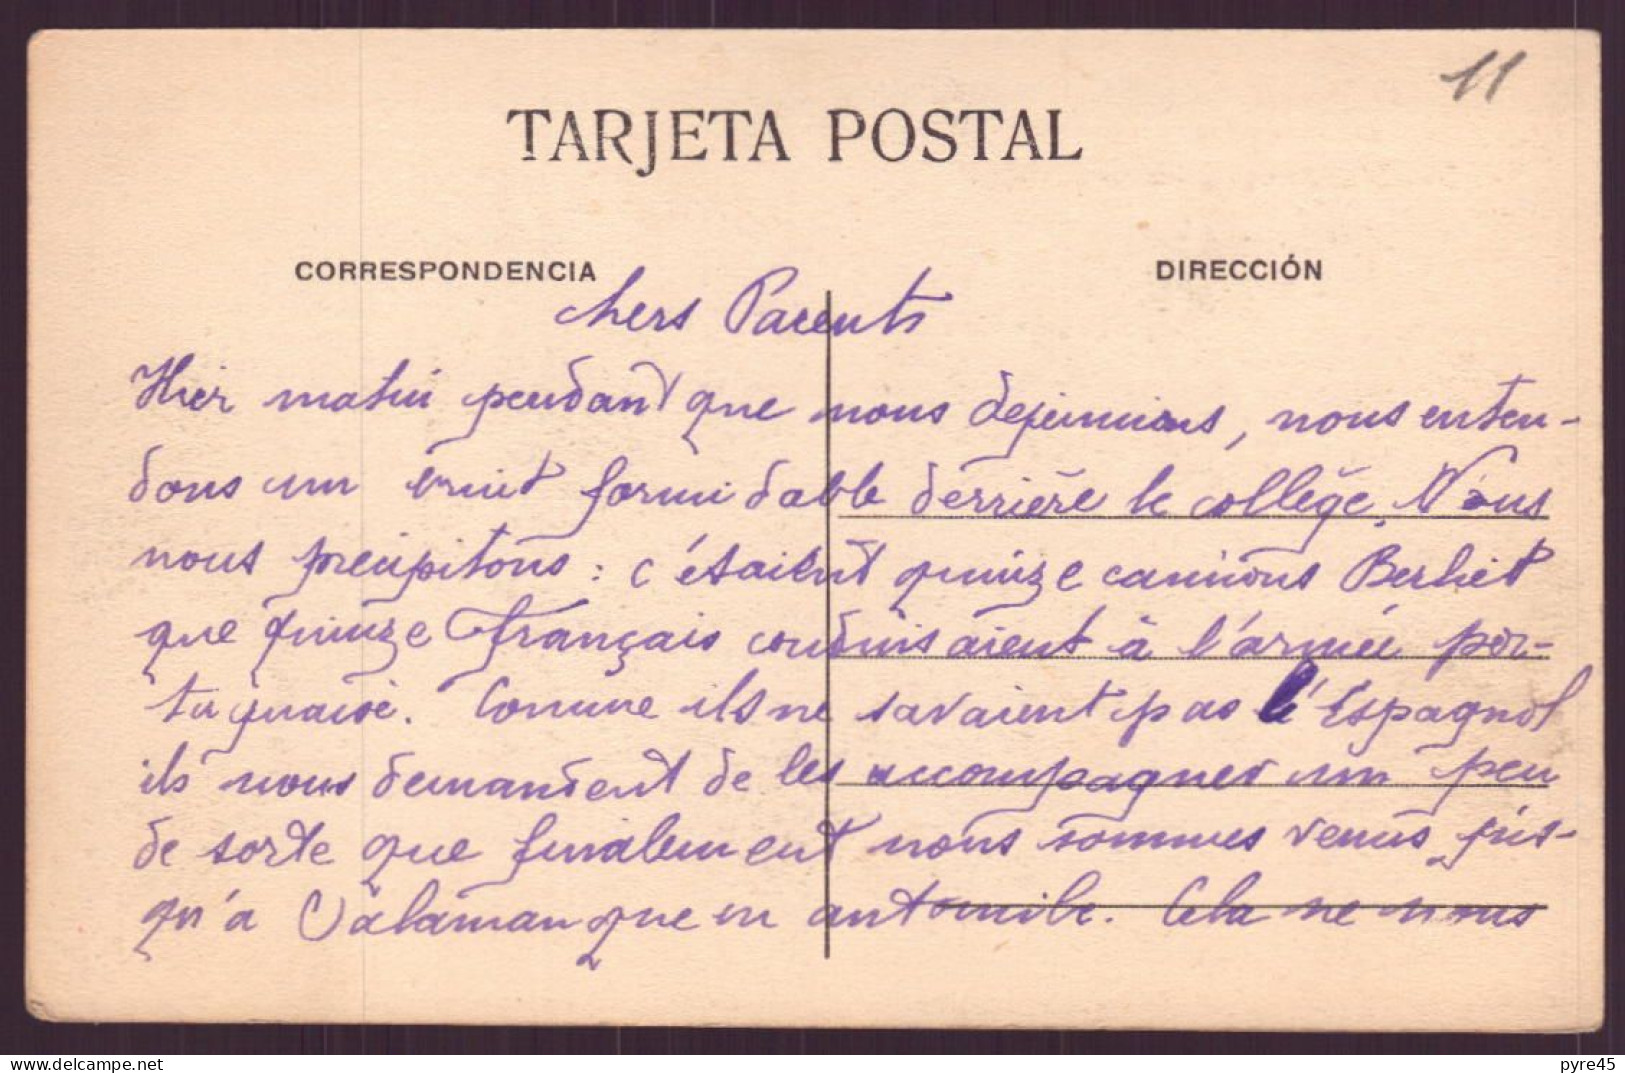 11
TARJETA POSTAL
CORRESPONDENCIA
DIRECCIÓN
Chers Parents
Hier matin pendant que nous dejeunions, nous enten-
dons un bruit formidable derrière le collège. Nous
nous precipitons : c'étaient quinze camions Berliet
que quinze Français conduisaient à l'armée por-
tuguaise. Comme ils ne savaient pas l'Espagnol
ils nous demandent de les accompagner un peu
de sorte que finalement nous sommes venus jus-
qu'à Salamanque en automile. Cela ne nous
pyre45